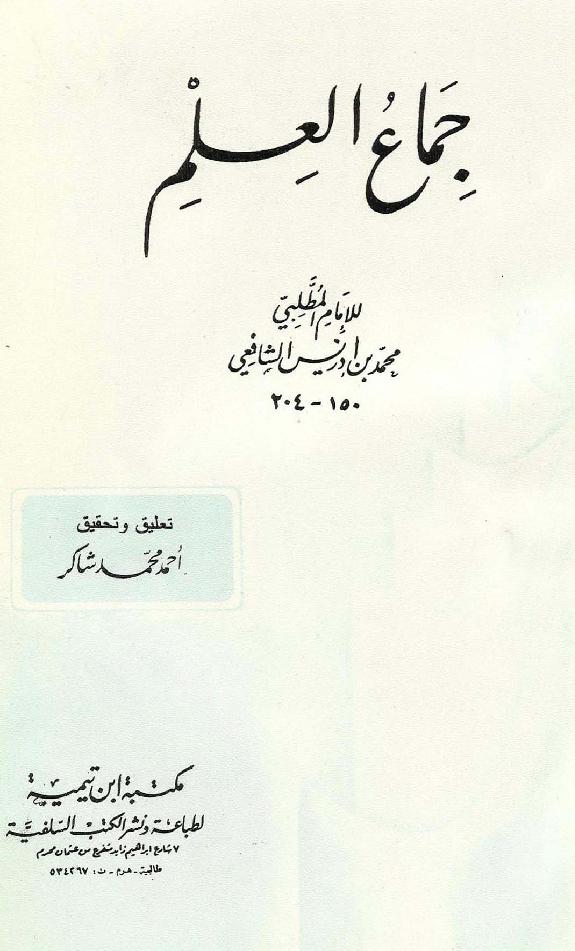 جِمَاعُ العِلْمِ
للإمام المُطَّلِبيّ
محمّد بن إدريس الشافعي
١٥٠ - ٢٠٤
تعليق وتحقيق
أحمد محمّد شاكر
مكتبة ابن تيمية
لطباعة ونشر الكتب السلفيَّة
٧ شارع ابراهيم زايد متفرع من عثمان محرم
طالبية - هرم - ت : ٥٣٤٢٦٧